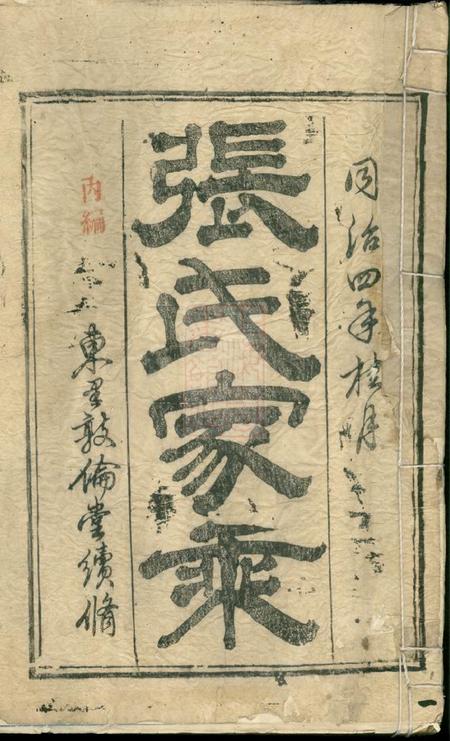 同治四年桂月
張氏家乘
內編
東里敦倫堂續脩
一